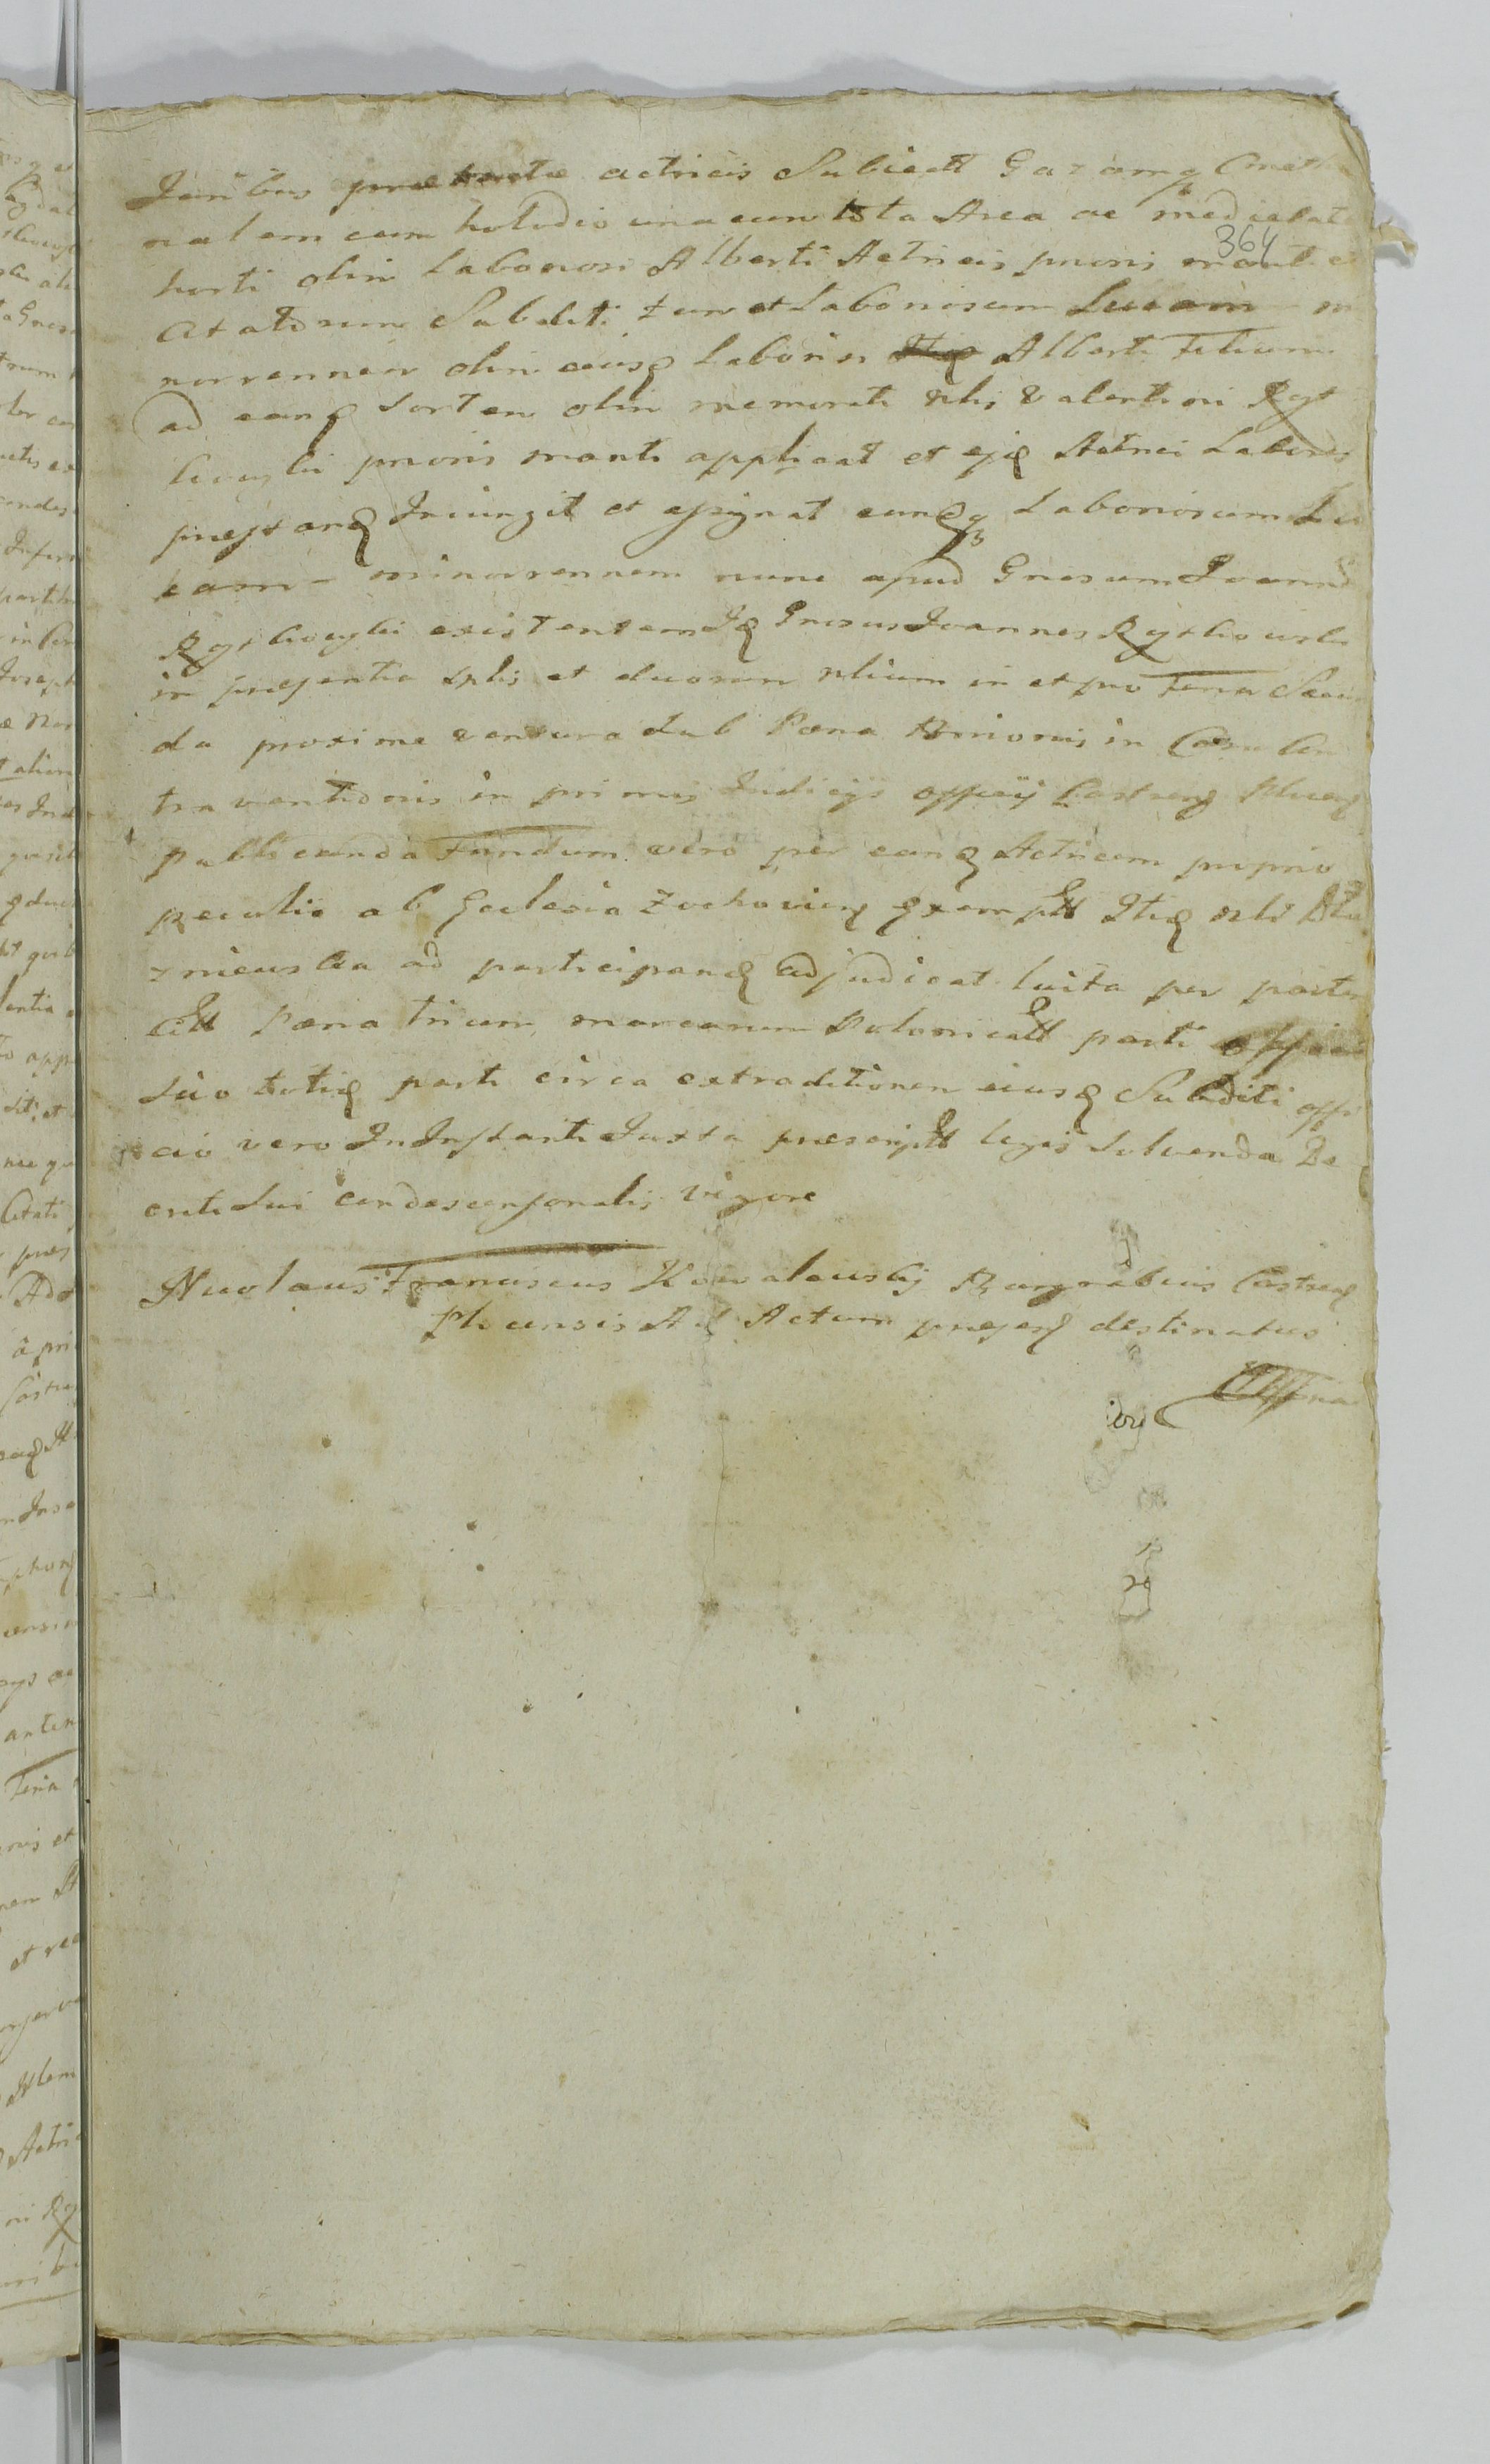 Juribus actricis Subiectt Gazamq Cmetho
nalem cum holudio una cum tota Area ac medietate
364
horti olim Laboriosi Alberti Actricis prioris mariti et
Citatorum Subditi tum et Laboriosum Lucam mi
norrennem olim eiusq Laboriosi Alberti Filium
ad eanq Sortem olim memorati nlis Valentini Ryst
kowski prioris mariti applicat et Actrici Labores
prestanq Iniungit et assignat eunq Laboriosum Lu
cam minorrennem nunc apud Gnosum Joannem
Rystkowski existentem Gnosus Joannes Rystkowski
in presentia et duorum nlium in et pro Feria Secun
da proxime ventura sub Pœna in Casu Con
traventionis in primis Iudicijs officij Castrens Plocens
publicanda Fundum vero per eanq Actricem proprio
peculio ab Ecclesia Zochoviens exemptt nli
ad participanq adjudicat luita per partem
Citt Pœna trium marcarum Polonicatt parti officio
suo parti circa extraditionem eiusq Subditi offi
cio vero In Instanti Juxta prescriptt legis Solvenda De
creti Sui condescensionalis vigore
Nicolaus Franciscus Kowalewskj Burgrabius Castrens
Plocensis Ad Actum presens destinatus